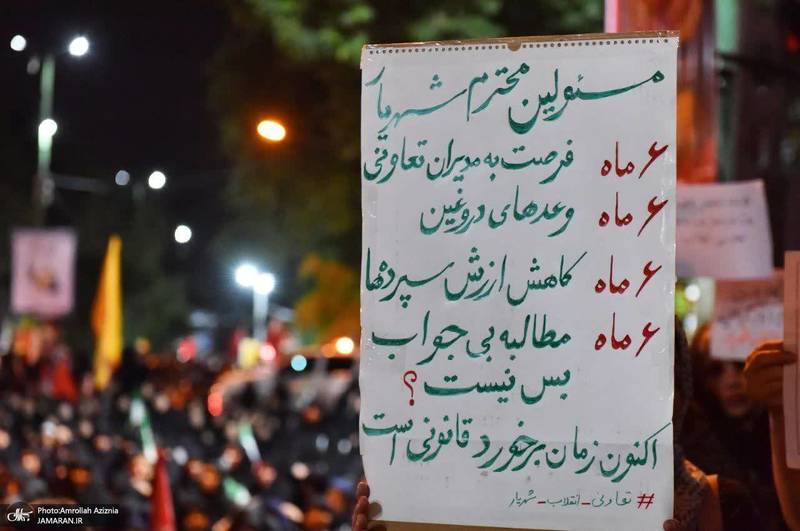 مسئولین محترم شهریار
۶ ماه فرصت به مدیران تعاونی
۶ ماه وعدهای دروغین
۶ ماه کاهش ارزش سپرده‌ها
۶ ماه مطالبه بی جواب
بس نیست ؟
اکنون زمان برخورد قانونی است
#تعاونی_انقلاب_شهریار
Photo:Amrollah Aziznia
JAMARAN.IR